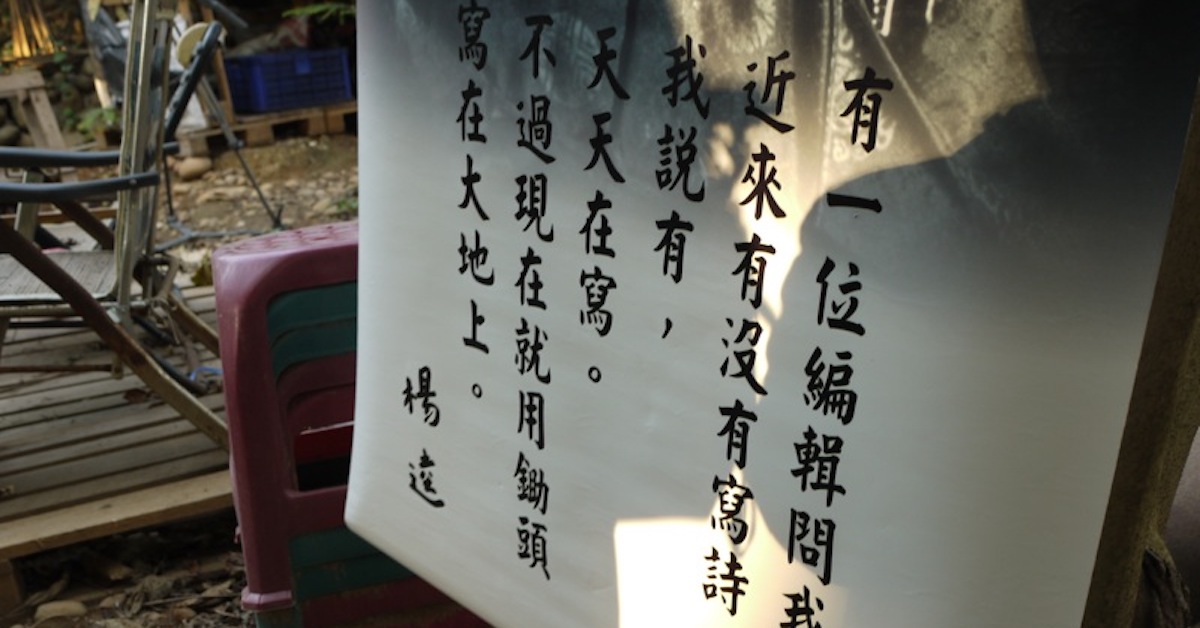 有一位編輯問我
近來有沒有寫詩
我説有，
天天在寫。
不過現在就用鋤頭
寫在大地上。
楊逵